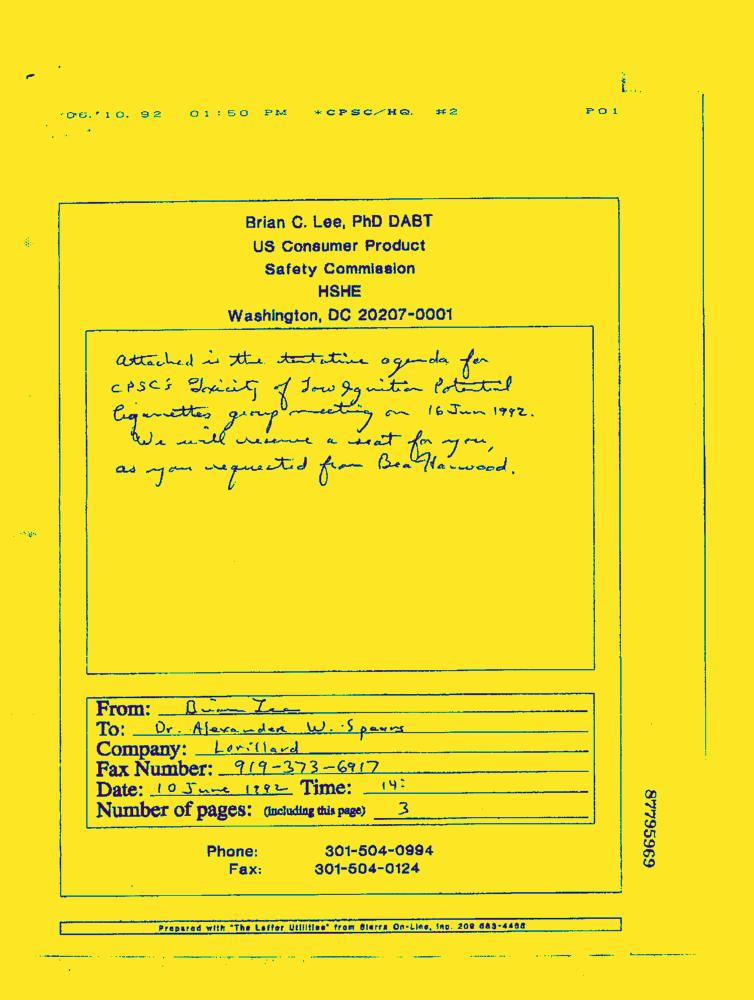 '06.'10. 92 01:50 PM *CPSC/HQ. #2 P01
Brian C. Lee, PhD DABT
US Consumer Product
Safety Commission
HSHE
Washington, DC 20207-0001
Attached is the tentative agenda for
CPSC's Toxicity of Low Ignition Potential
Cigarettes group meeting on 16 Jun 1992.
We will reserve a seat for you,
as you requested from Bea Harwood.
From: Brian Lee
To: Dr. Alexander W. Spears
Company: Lorillard
Fax Number: 919-373-6917
Date: 10 June 1992 Time: 14:
Number of pages: (including this page) 3
Phone: 301-504-0994
Fax: 301-504-0124
87795969
Prepared with "The Laffer Utilities" from Sierra On-Line, Inc. 209 683-4468